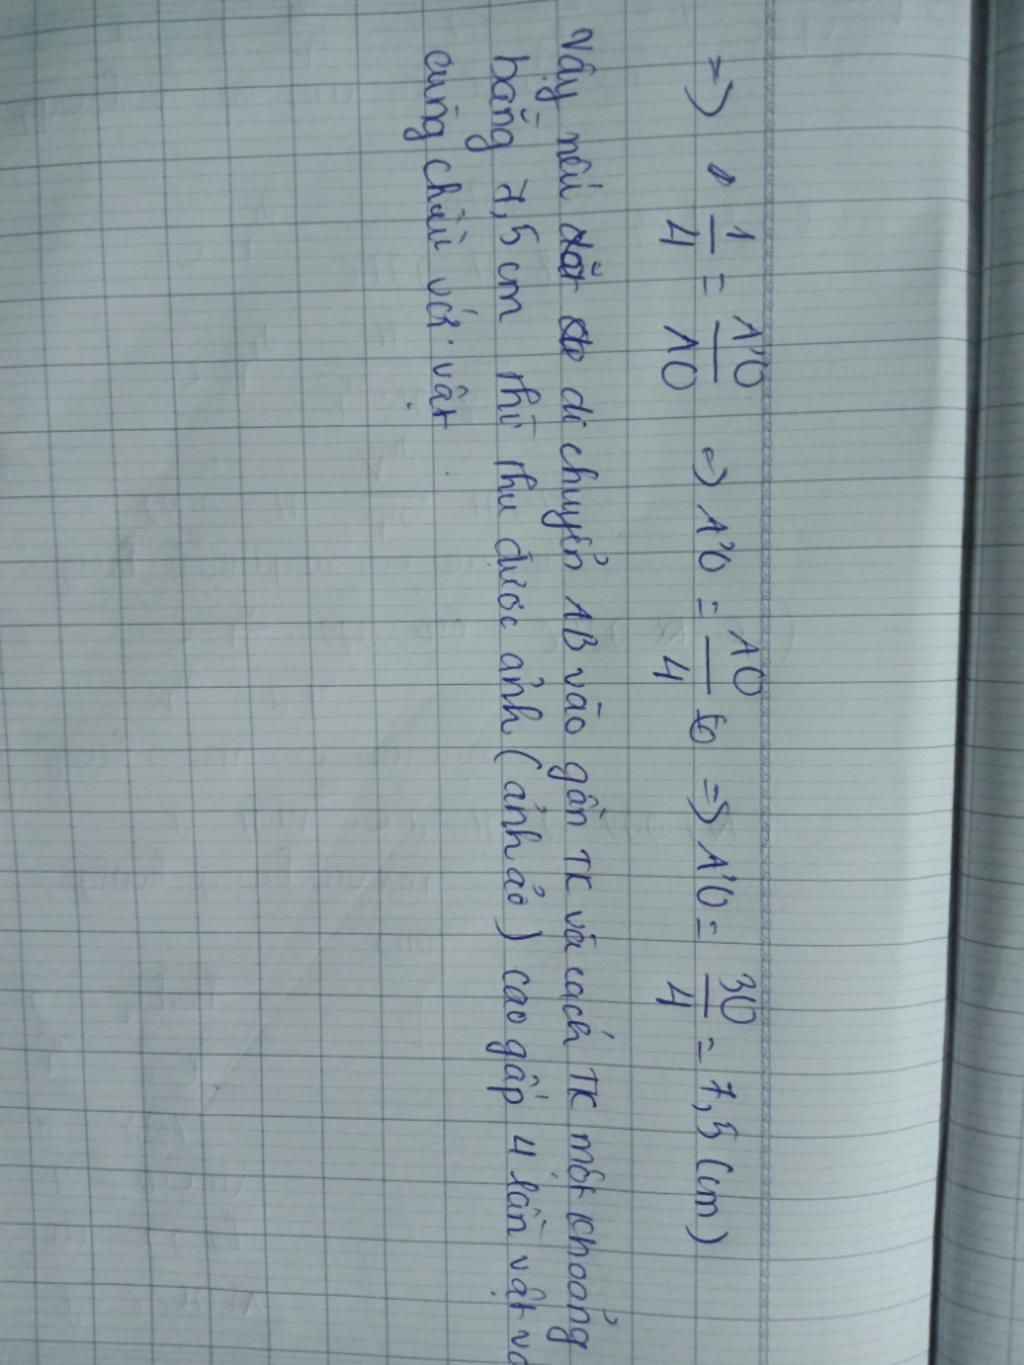 => 1/4 = A'O/AO => A'O = AO/4 => A'O = 30/4 = 7,5 (cm)
Vậy nếu di chuyển AB vào gần TK và cách TK một khoảng
bằng 7,5 cm thì thu được ảnh (ảnh ảo) cao gấp 4 lần vật và
cùng chiều với vật.